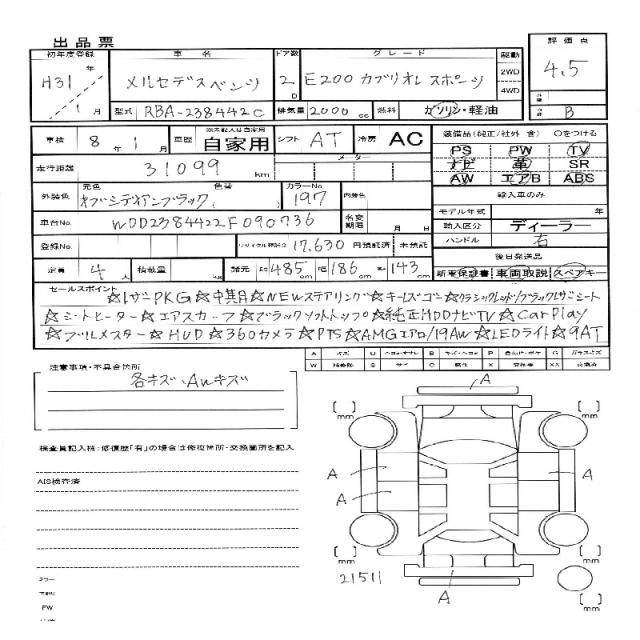 出品票
初年度登録 車名 ドア数 グレード 駆動 評価点
H31年 メルセデスベンツ 2D E200 カブリオレ スポーツ 2WD 4WD 4.5
1月 型式 RBA-238442C 排気量 2000cc 燃料 ガソリン・軽油 B
車検 8年1月 車歴 ※未記入は自家用 自家用 シフト AT 冷房 AC 装備品(純正/社外 含) 〇をつける
PS PW TV
走行距離 31099km メーター ナビ 革 SR
AW エアB ABS
外装色 元色 オブシディアンブラック( 色替 ) カラーNo 197 内装色 輸入車のみ
モデル年式 年
車台No. WDD2384422F090736 名変期限 月 日 輸入区分 ディーラー
登録No. リサイクル預託金 17,630 円預託済 未預託 ハンドル 右
後日発送品
定員 4人 積載量 諸元 長485cm 幅186cm 高143cm 新車保証書 車両取説 スペアキー
セールスポイント
☆レザーPKG☆中期目☆NEWステアリング☆キーレスゴー☆クラシックレッド/ブラックレザーシート
☆シートヒーター☆エアスカーフ☆ブラックソフトトップ☆純正HDDナビTV☆CarPlay
☆ブルメスター☆HUD☆360カメラ☆PTS☆AMGエアロ/19AW☆LEDライト☆9AT
A キズ U P G
W S サビ C X XX
注意事項・不具合箇所
各キズ、AWキズ
検査員記入欄:修復歴「有」の場合は修復箇所・交換箇所を記入
AIS検査済
A
[ ] mm [ ] mm
A A
A
[ ] mm [ ] mm
21511
A
[ ] mm
ミラー
PW